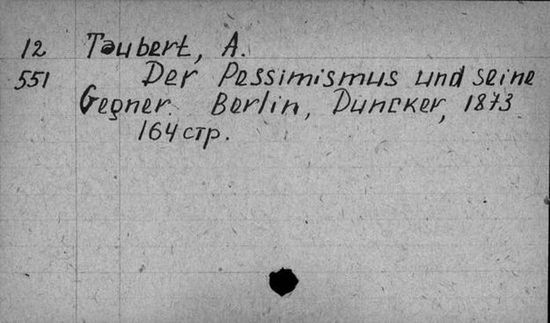 12 Taubert, A.
551 Der Pessimismus und seine
Gegner. Berlin, Duncker, 1873
164 стр.